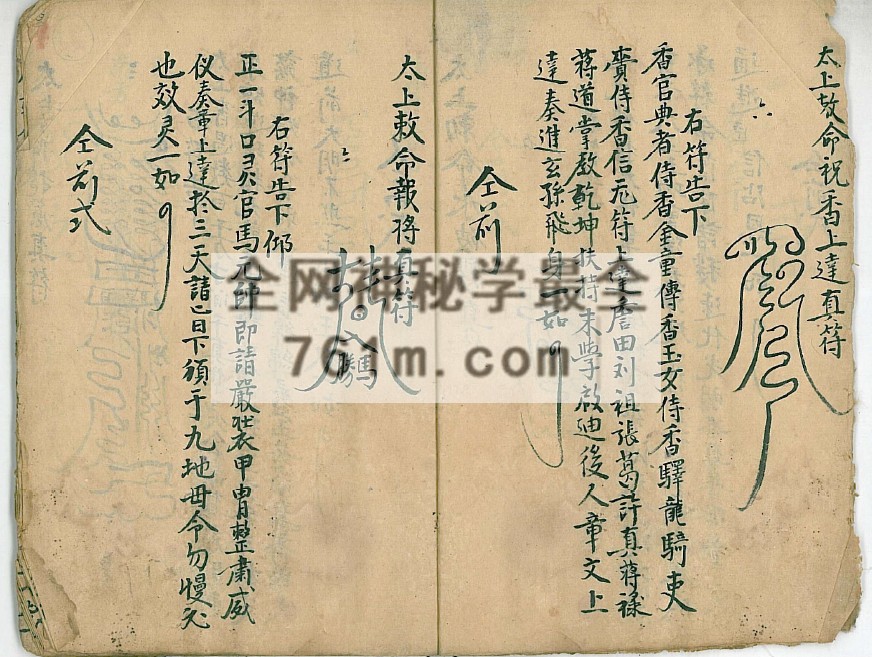 太上敕命祝香上達真符
右符告下
香官典者侍香金童傳香玉女侍香驛龍騎吏
賫侍香信 符上達 田刘祖張葛許真蒋禄
蒋道掌教乾坤扶持末學啟迪後人章文上
達奏進玄孫飛身一如
仝前
太上敕命報将真符
右符告下
正一斗口灵官馬元帥即請嚴裝衣甲胄整肅威
仪奏章上達於三天請 日下頒于九地毋令勿慢
也效灵一如
仝前式
全网神秘学最全
761m.com